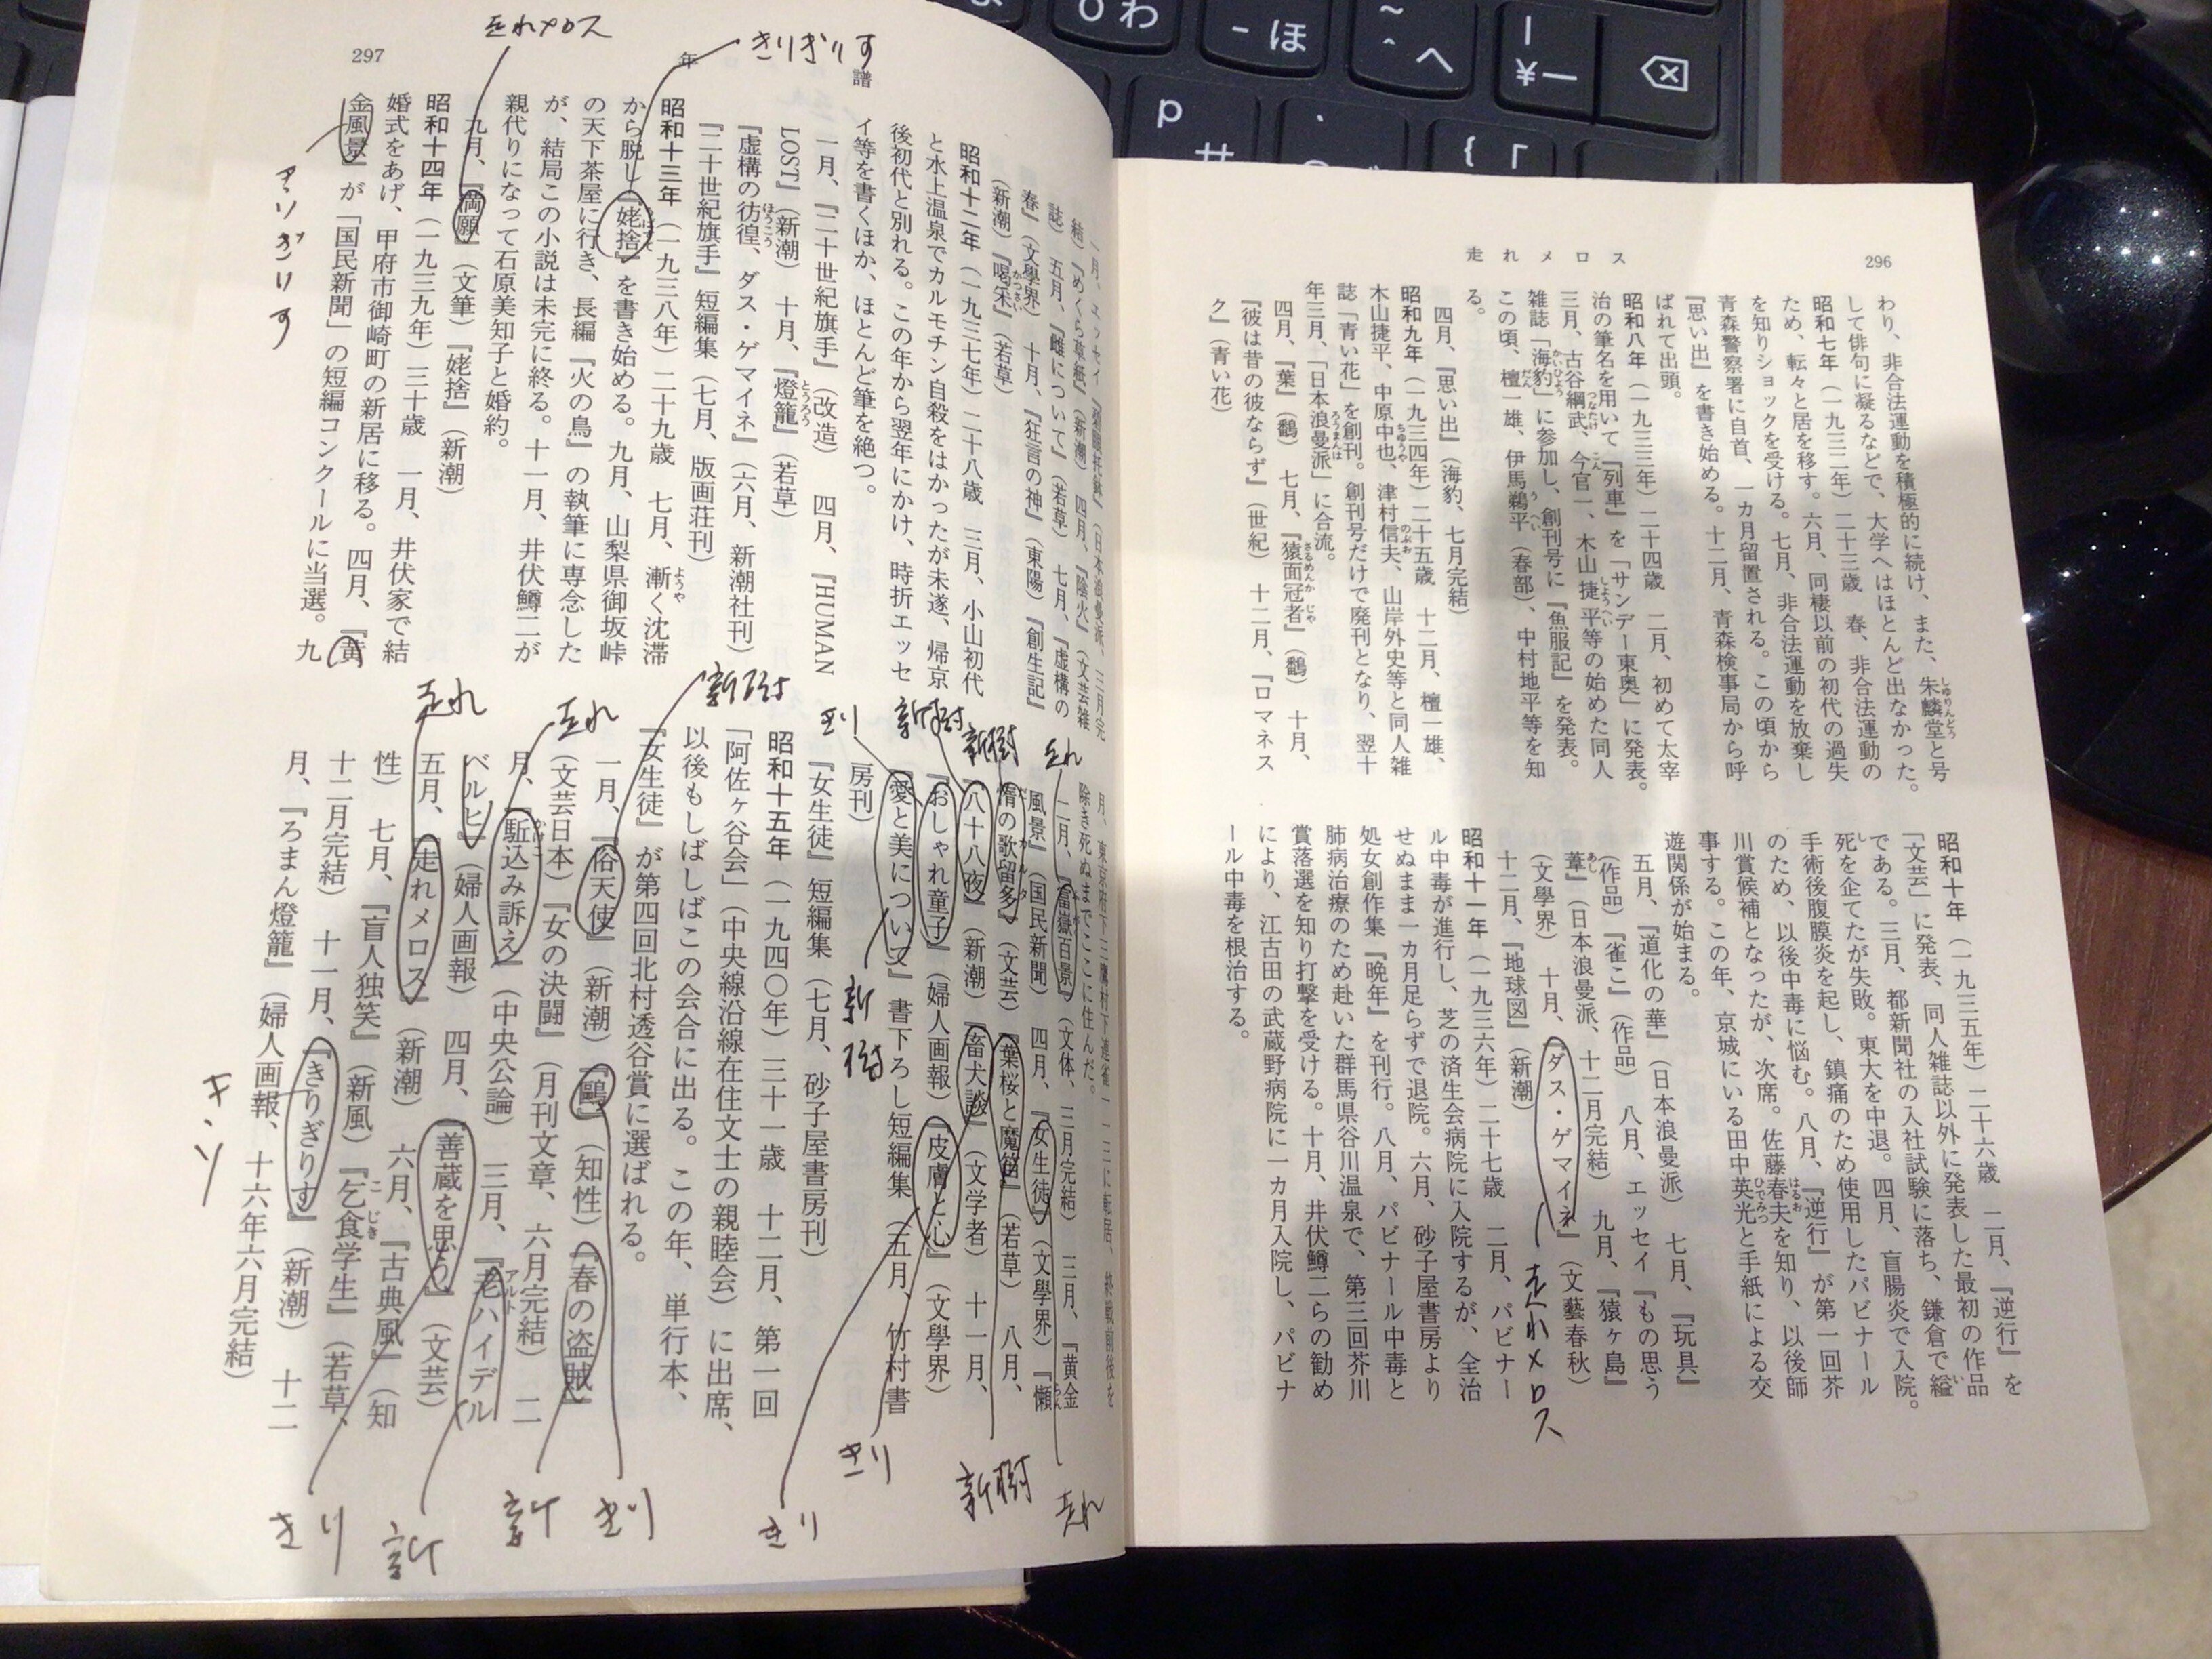 走れメロス
296
わり、非合法運動を積極的に続け、また、朱麟堂と号
して俳句に凝るなどで、大学へはほとんど出なかった。
昭和七年（一九三二年）二十三歳　春、非合法運動の
ため、転々と居を移す。六月、同棲以前の初代の過失
を知りショックを受ける。七月、非合法運動を放棄し
青森警察署に自首、一カ月留置される。この頃から
『思い出』を書き始める。十二月、青森検事局から呼
ばれて出頭。
昭和八年（一九三三年）二十四歳　二月、初めて太宰
治の筆名を用いて『列車』を「サンデー東奥」に発表。
三月、古谷綱武、今官一、木山捷平等の始めた同人
雑誌「海豹」に参加し、創刊号に『魚服記』を発表。
この頃、檀一雄、伊馬鵜平（春部）、中村地平等を知
る。
四月、『思い出』（海豹、七月完結）
昭和九年（一九三四年）二十五歳　十二月、檀一雄、
木山捷平、中原中也、津村信夫、山岸外史等と同人雑
誌「青い花」を創刊。創刊号だけで廃刊となり、翌十
年三月、「日本浪曼派」に合流。
四月、『葉』（鷭）　七月、『猿面冠者』（鷭）　十月、
『彼は昔の彼ならず』（世紀）　十二月、『ロマネス
ク』（青い花）
昭和十年（一九三五年）二十六歳　二月、『逆行』を
「文芸」に発表、同人雑誌以外に発表した最初の作品
である。三月、都新聞社の入社試験に落ち、鎌倉で縊
死を企てたが失敗。東大を中退。四月、盲腸炎で入院。
手術後腹膜炎を起し、鎮痛のため使用したパビナール
のため、以後中毒に悩む。八月、『逆行』が第一回芥
川賞候補となったが、次席。佐藤春夫を知り、以後師
事する。この年、京城にいる田中英光と手紙による交
遊関係が始まる。
五月、『道化の華』（日本浪曼派）　七月、『玩具』
（作品）『雀こ』（作品）　八月、エッセイ『もの思う
葦』（日本浪曼派、十二月完結）　九月、『猿ヶ島』
（文學界）　十月、『ダス・ゲマイネ』（文藝春秋）
十二月、『地球図』（新潮）
走れメロス
昭和十一年（一九三六年）二十七歳　二月、パビナー
ル中毒が進行し、芝の済生会病院に入院するが、全治
せぬまま一カ月足らずで退院。六月、砂子屋書房より
処女創作集『晩年』を刊行。八月、パビナール中毒と
肺病治療のため赴いた群馬県谷川温泉で、第三回芥川
賞落選を知り打撃を受ける。十月、井伏鱒二らの勧め
により、江古田の武蔵野病院に一カ月入院し、パビナ
ール中毒を根治する。
年　譜
297
走れメロス
きりぎりす
結）『めくら草紙』（新潮）　四月、『陰火』（文芸雑
誌）　五月、『雌について』（若草）　七月、『虚構の
春』（文學界）　十月、『狂言の神』（東陽）『創生記』
（新潮）『喝采』（若草）
昭和十二年（一九三七年）二十八歳　三月、小山初代
と水上温泉でカルモチン自殺をはかったが未遂、帰京
後初代と別れる。この年から翌年にかけ、時折エッセ
イ等を書くほか、ほとんど筆を絶つ。
一月、『二十世紀旗手』（改造）　四月、『HUMAN
LOST』（新潮）　十月、『燈籠』（若草）
『虚構の彷徨、ダス・ゲマイネ』（六月、新潮社刊）
『二十世紀旗手』短編集（七月、版画荘刊）
昭和十三年（一九三八年）二十九歳　七月、漸く沈滞
から脱し『姥捨』を書き始める。九月、山梨県御坂峠
の天下茶屋に行き、長編『火の鳥』の執筆に専念した
が、結局この小説は未完に終る。十一月、井伏鱒二が
親代りになって石原美知子と婚約。
九月、『満願』（文筆）『姥捨』（新潮）
昭和十四年（一九三九年）三十歳　一月、井伏家で結
婚式をあげ、甲府市御崎町の新居に移る。四月、『黄
金風景』が「国民新聞」の短編コンクールに当選。九
月、東京府下三鷹村下連雀一一三に転居、終戦前後を
除き死ぬまでここに住んだ。
二月、『富嶽百景』（文体、三月完結）　三月、『黄金
風景』（国民新聞）　四月、『女生徒』（文學界）『懶
惰の歌留多』（文芸）『葉桜と魔笛』（若草）　八月、
『八十八夜』（新潮）『畜犬談』（文学者）　十一月、
『おしゃれ童子』（婦人画報）『皮膚と心』（文學界）
『愛と美について』書下ろし短編集（五月、竹村書
房刊）
『女生徒』短編集（七月、砂子屋書房刊）
昭和十五年（一九四〇年）三十一歳　十二月、第一回
「阿佐ヶ谷会」（中央線沿線在住文士の親睦会）に出席、
以後もしばしばこの会合に出る。この年、単行本、
『女生徒』が第四回北村透谷賞に選ばれる。
一月、『俗天使』（新潮）『鷗』（知性）『春の盗賊』
（文芸日本）『女の決闘』（月刊文章、六月完結）　二
月、『駈込み訴え』（中央公論）　三月、『老ハイデル
ベルヒ』（婦人画報）　四月、『善蔵を思う』（文芸）
五月、『走れメロス』（新潮）　六月、『古典風』（知
性）　七月、『盲人独笑』（新風）『乞食学生』（若草、
十二月完結）　十一月、『きりぎりす』（新潮）　十二
月、『ろまん燈籠』（婦人画報、十六年六月完結）
走れ
走れ
新樹
きり
新樹
新樹
走れ
新樹
きり
新
新
きり
きり
きり
新樹
走れ